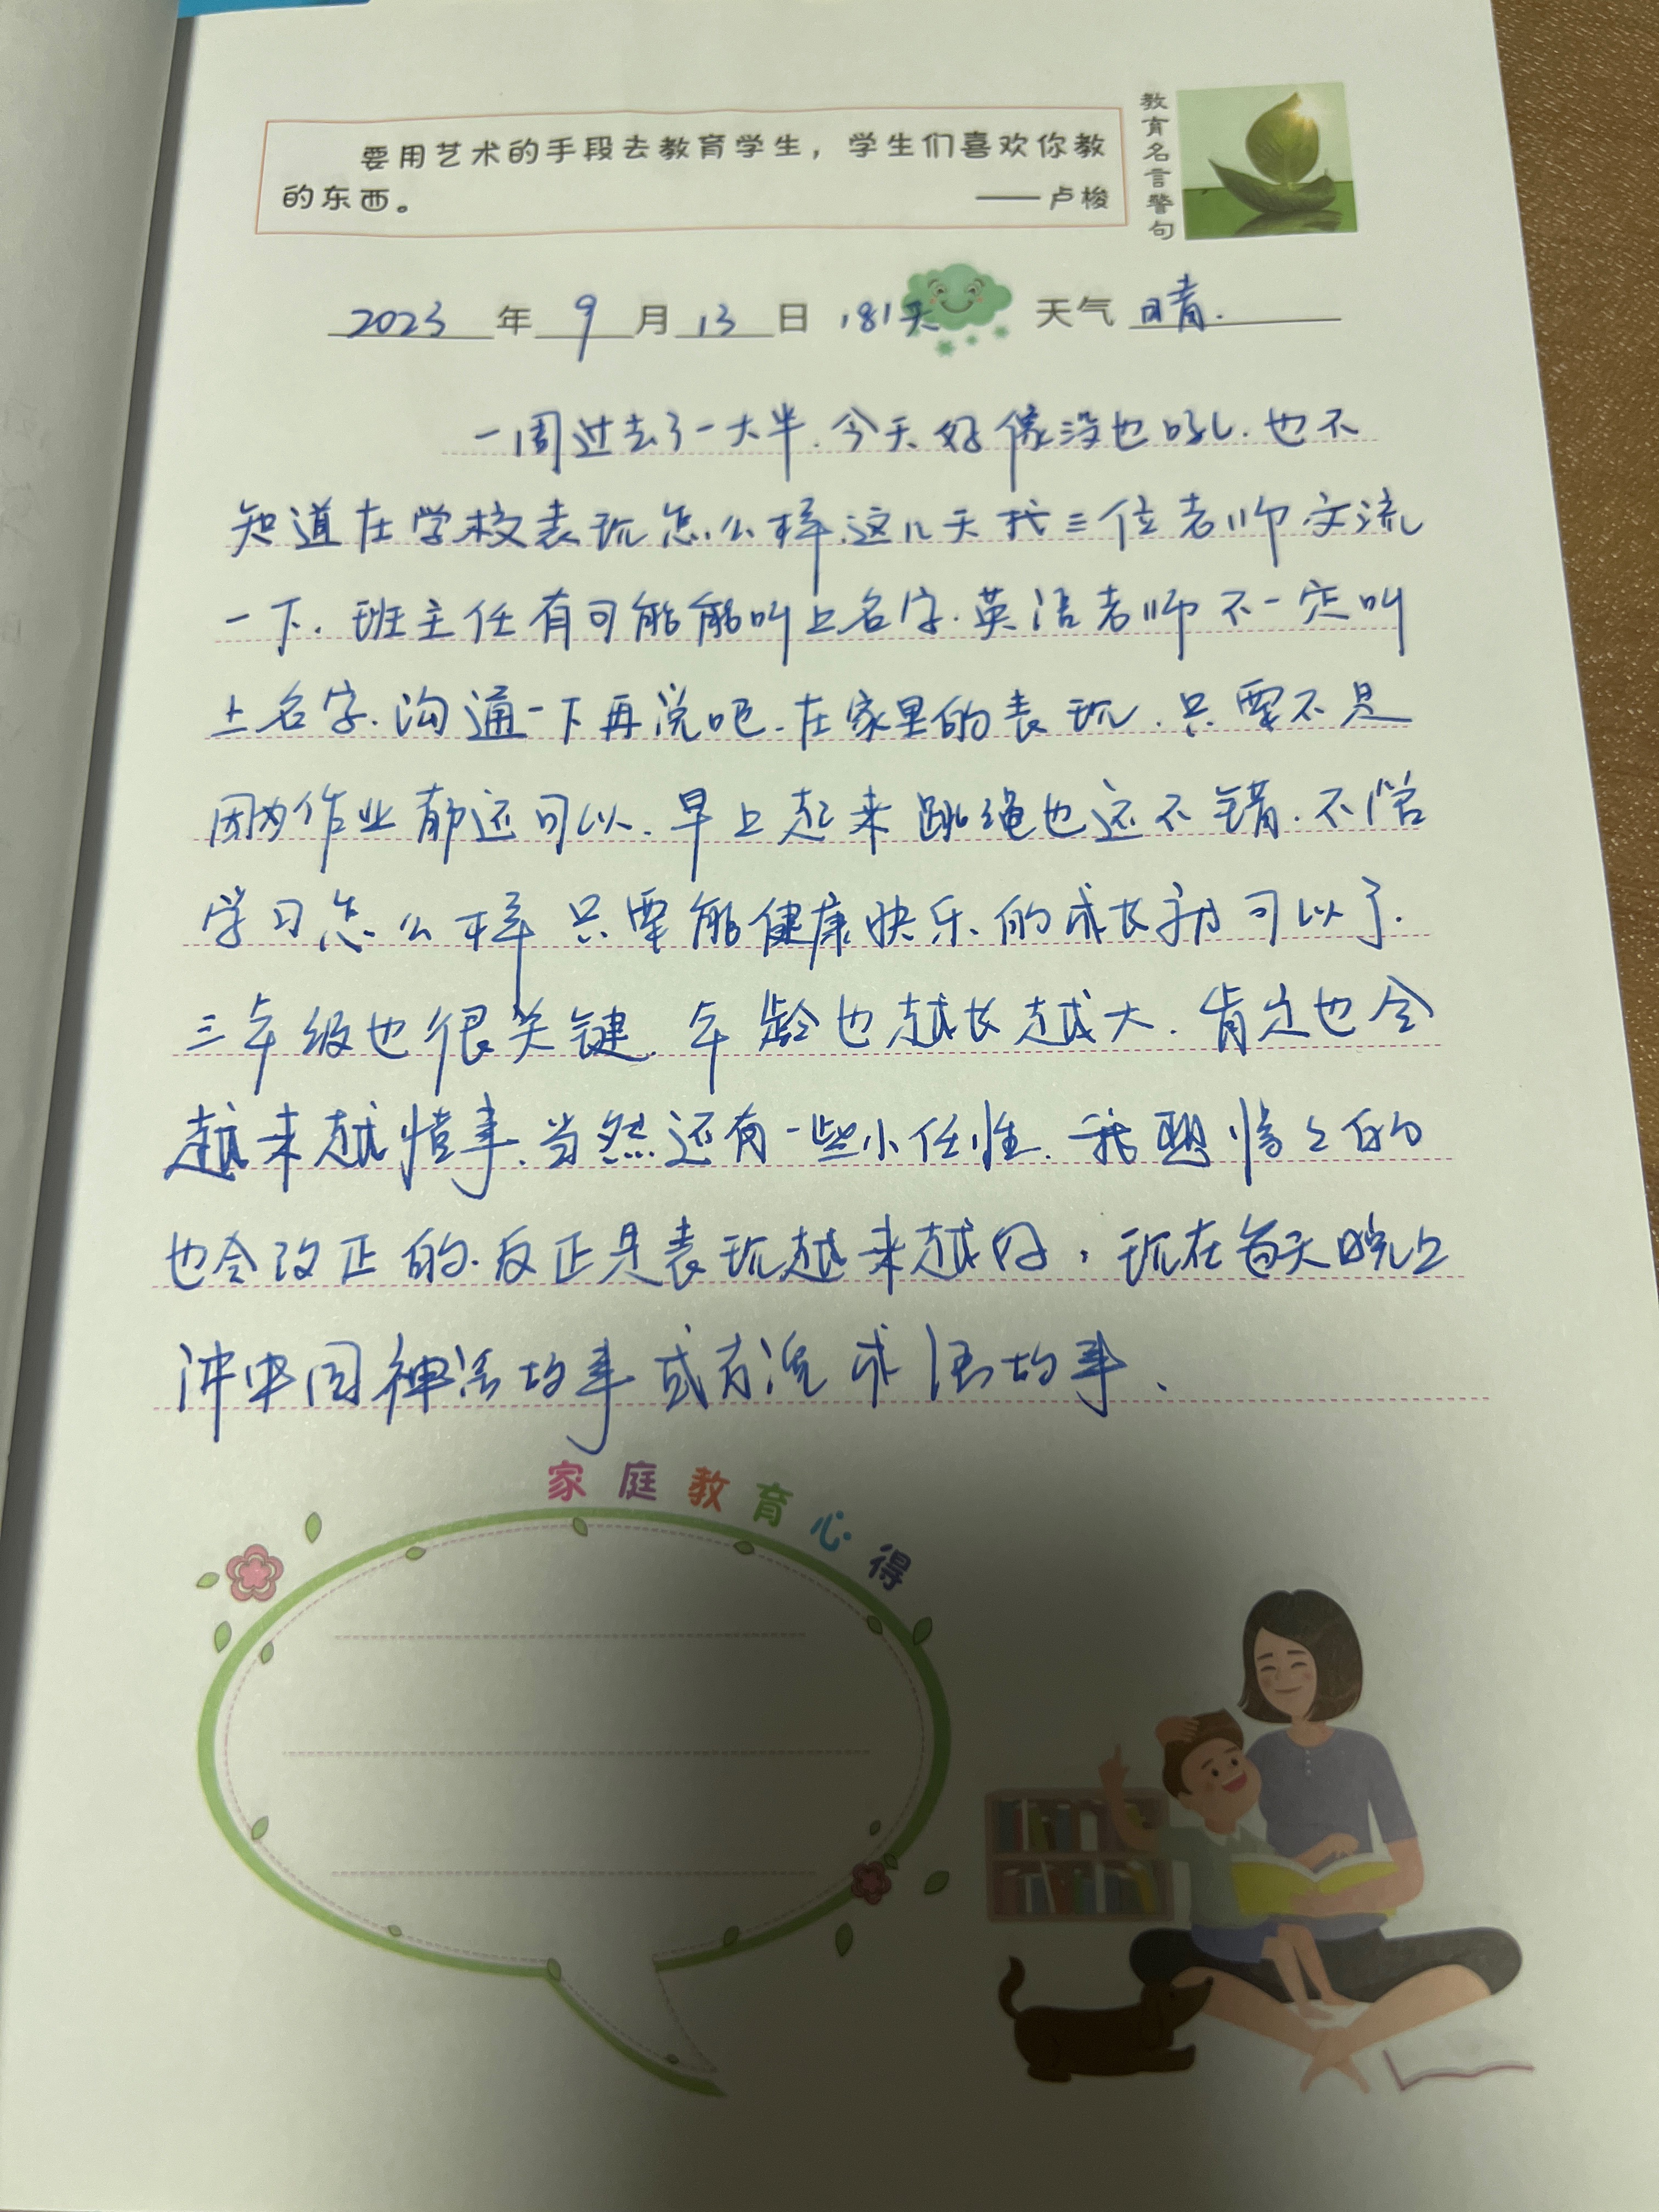 要用艺术的手段去教育学生，学生们喜欢你教
的东西。
——卢梭
教育名言警句
2023年9月13日 181天 天气 晴.
一周过去了一大半.今天好像没也吼.也不
知道在学校表现怎么样.这几天找三位老师交流
一下.班主任有可能能叫上名字.英语老师不一定叫
上名字.沟通一下再说吧.在家里的表现.只要不是
因为作业都还可以.早上起来跳绳也还不错.不管
学习怎么样 只要能健康快乐的成长就可以了.
三年级也很关键.年龄也越长越大.肯定也会
越来越懂事.当然还有一些小任性.我想慢慢的
也会改正的.反正是表现越来越好,现在每天晚上
讲中国神话故事或者说成语故事、
家庭教育心得